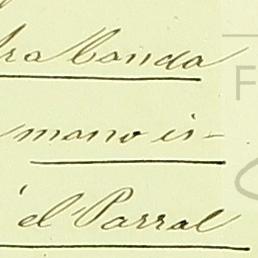 tra banda
mano iz-
el Parral